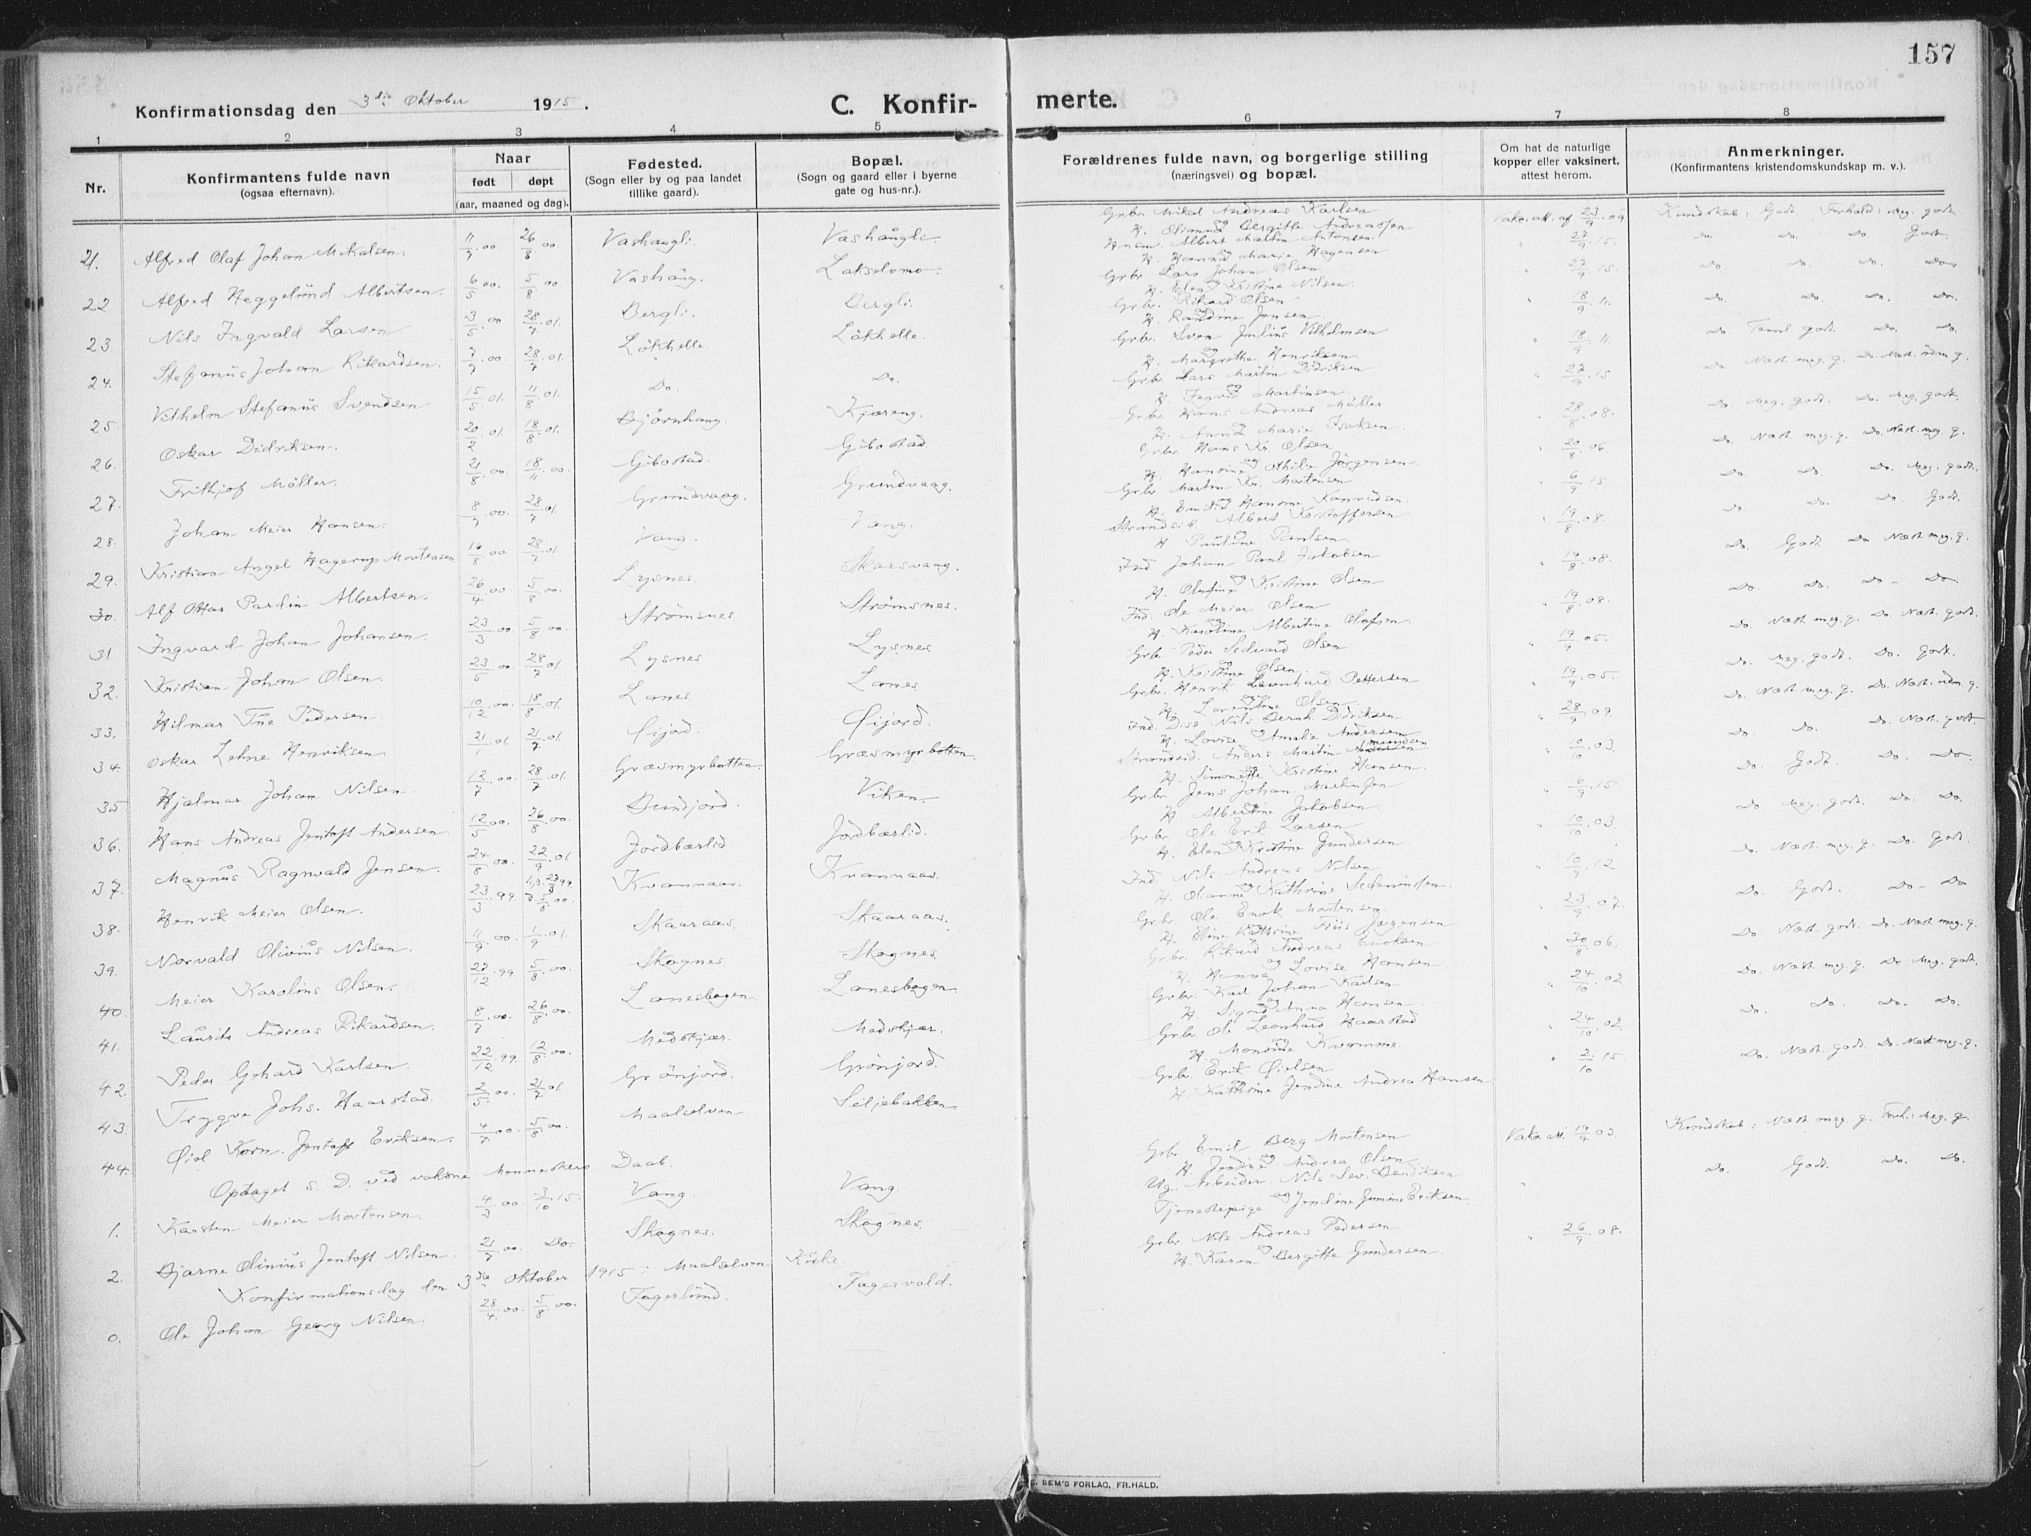 157
Konfirmationsdag den 3die Oktober 1915. C. Konfir- merte.
1 2 3 4 5 6 7 8
Nr. Konfirmantens fulde navn (ogsaa efternavn). Naar født døpt (aar, maaned og dag). Fødested. (Sogn eller by og paa landet tillike gaard). Bopæl. (Sogn og gaard eller i byerne gate og hus-nr.). Forældrenes fulde navn, og borgerlige stilling (næringsvei) og bopæl. Om hat de naturlige kopper eller vaksinert, attest herom. Anmerkninger. (Konfirmantens kristendomskundskap m. v.).
21. Alfred Olaf Johan Mikalsen. 11/7.00 26/8 00 Vashaugli. Vashaugli. Grbr. Mikal Andreas Karlsen
H. Olianna Bergitte Andreassen Vaks. att. af 23/9.09 Kundskab: Godt Forhold: meg. godt
22 Alfred Heggelund Albertsen. 6/5 00. 5/8 00 Vashaug. Lakselvmo. Husm. Albert Martin Antonsen
H. Hanna Marie Hagensen " 27/9.15. Do. Do. Do Godt.
23. Nils Ingvald Larsen 3/5.00 28/7.01. Bergli. Bergli. Grbr. Lars Johan Olsen
H. Elen Kristine Nilsen. " 27/9.15. Do. Do. Do. Do.
24. Stefanus Johan Rikardsen. 7/7.00. 28/7.01. Løkhelle. Løkhelle. Grbr. Rikard Olsen
H. Randine Jensen. " 18/9.11. Do. Do. Do. Do.
25. Vilhelm Stefanus Svendsen 15/5.01. 11/8 01. Do. Do. Grbr. Sven Julius Vilhelmsen
H. Margrethe Henriksen " 18/9.11. Do. Teml. godt. Do. Do.
26. Oskar Didriksen. 20/2.01. 18/8.01. Bjørnhaug. Kjæreng. Grbr. Lars Martin Didriksen
H. Ingrid Martinsen " 27/9.15 Do. Næst. meg. g. Do. Næst. udm. g.
27. Frithjof Møller. 21/8.00. 18/11.00. Gibostad. Gibostad. Grbr. Hans Andreas Møller
H. Anna Marie Isaksen. " 28/8.08. Do. Meg. godt. Do. Meg. godt.
28. Johan Meier Hansen. 8/7.00. 28/7.01. Grundvaag. Grundvaag. Grbr. Hans Kr. Olsen
H. Hansine Jørgensen. " 20/8.06 Do. Næst meg. g. Do. Næst. meg. g.
29. Kristian Angel Hagerup Mortensen 16/8.00 28/7.01. Vang. Vang. Grbr. Marten Kr. Mortensen
H. Emilie Hansine Konradsen. " 6/9.15 Do. Do. Do. Meg. godt.
30. Alf Ottar Pardin Albertsen. 26/4.00 5/8.00. Lysnes Skarsvaag. Strandsid. Albert Kristoffersen
H. Pauline Paulsen. " 19/8.08. Do. Do. Do. Godt.
31 Ingvard Johan Johansen 23/3.00. 5/8.00 Strømsnes Strømsnes. Ind. Johan Paul Jakobsen
H. Olufine Kristine Olsen. " 19/8.08. Do. Godt Do Næst meg. g.
32. Kristian Johan Olsen. 23/5.00. 28/7.01 Lysnes Lysnes Ind. Ole Meier Olsen
H. Karoline Albertine Olafsen. " 19/8.08. Do. Do. Do. Do.
33. Hilmar Pedersen 10/12.00. 18/8.01. Lanes Lanes Grbr. Peder Sedvard Olsen
H. Kristine Olsen " 19/9.05. Do. Næst. meg. g. Do. Næst. godt.
34. Oskar Lehne Henriksen 21/1.01. 21/7.01. Øijord. Øijord. Grbr. Henrik Leonhard Pettersen
H. Lorentine Olsen " 19/9.05. Do. Meg. godt. Do. godt.
35 Hjalmar Johan Nilsen. 12/7.00. 28/7.01. Græsmyrbotten. Græsmyrbotten. Ind. Nils Bernh. Didriksen
H. Lovise Amalie Andersen " 28/9.09. Do. Næst meg. g. Do. Næst. udm. g.
36. Hans Andreas Jentoft Andersen 12/5.00. 26/8.00. Bundjord. Viken. Strandsid. Anders Martin Amundsen
H. Simonette Kristine Hansen. " 10/10.03. Do. Do. Do. Næst. godt.
37. Magnus Ragnvald Jensen. 24/8.00. 22/9.01 Jordbærlid. Jordbærlid. Grbr. Jens Johan Martin Jensen
H. Albertine Jakobsen. " 6/9.15. Do. Godt. Do. Do.
38. Henrik Meier Olsen. 23/3.99 5/8 00. Kvannaas. Kvannaas. Grbr. Ole Erik Larsen
H. Elen Kristine Gundersen " 10/10.03 Do. Meg. godt. Do. Do.
39. Norvald Olivius Nilsen. 11/9.00. 1/9.01. Skaaraas. Skaaraas. Ind. Nils Andreas Nilsen
H. Olianna Kathrine " 10/9.12 Do. Næst meg. g. Do. Godt.
40. Meier Karolius Olsen. 27/12.99. 5/8.00. Skognes Skognes Grbr. Ole Enok Mortensen
H. Eline Kathrine Friis Jørgensen " 23/9.07. Do. Godt. Do. Do
41. Laurits Andreas Rikardsen. 8/7.00. 26/8.00. Lanesbogen. Lanesbogen Grbr. Rikard Andreas Enoksen
H. Hanna Lovise Hansen " 30/8.06. Do. Næst godt. Do. Næst meg. g.
42. Peder Gehard Karlsen. 22/12.99. 12/8.00. Medskjær. Medskjær. Grbr. Karl Johan Karlsen
H. Sigrid Anna Hansen " 24/10.02 Do. Næst meg. g. Do. Meg. godt.
43 Trygve Johs. Haarstad. 2/5.00. 21/7.01 Grønjord. Grønjord. Grbr Ole Leonhard Haarstad
H. Kvamme " 24/10.02 Do. Do. Do. Do.
44. Øiel Korn. Jentoft Eriksen. 4/7.00. 5/8.00. Maalselven Seljebakken Grbr. Erik Øielsen
H. Kathrine Jendine Andrea Hansen " 2/10.15 Do. Næst. godt. Do. Næst meg. g.
Optaget s. D. ved voksne Menneskers Daab.
1. Karsten Meier Mortensen. 4/3.00. 3/10.15 Vang. Vang. Grbr. Emil Berg Mortensen
H. Jødine Andrea Olsen Vaks. att. 19/9.03. Kundskab: Næst meg. g. Forh.: Meg. g.
2. Bjarne Olinius Jentoft Nilsen. 21/7.00 Do. Skognes. Skognes. Ug. Arbeider Nils Sev. Bendiksen
Tjenestepige Jendine Eriksen " Do. Godt. Do. Do.
Konfirmationsdag den 3die Oktober 1915 i Maalselven Kirke.
0. Ole Johan Georg Nilsen. 28/4.00. 5/8.00. Fagerlund. Fagervold. Grbr. Nils Andreas Pedersen
H. Karen Bergitte Gundersen. " 26/9.08.
BEM'S FORLAG, FR.HALD.